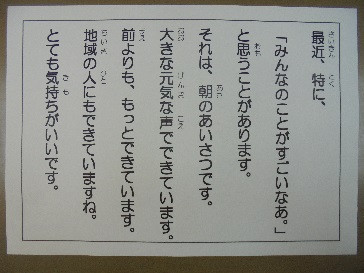 最近、特に、
「みんなのことがすごいなあ。」
と思うことがあります。
それは、朝のあいさつです。
大きな元気な声でできています。
前よりも、もっとできています。
地域の人にもできていますね。
とても気持ちがいいです。